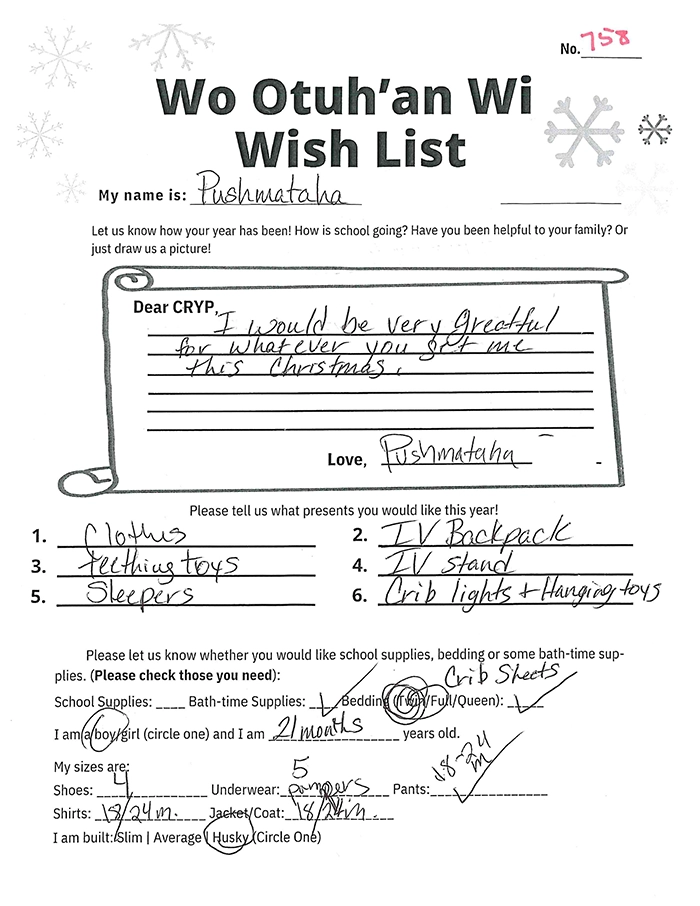 No. 758
Wo Otuh'an Wi
Wish List
My name is: Pushmataha
Let us know how your year has been! How is school going? Have you been helpful to your family? Or
just draw us a picture!
Dear CRYP,
I would be very greatful
for whatever you get me
this Christmas.
Love, Pushmataha
Please tell us what presents you would like this year!
1. Clothes 2. IV Backpack
3. teething toys 4. IV stand
5. Sleepers 6. Crib lights + Hanging toys
Please let us know whether you would like school supplies, bedding or some bath-time sup-
plies. (Please check those you need): Crib Sheets
School Supplies: ____ Bath-time Supplies: ✓ Bedding (Twin/Full/Queen): ✓
I am a boy/girl (circle one) and I am 21 months years old.
My sizes are:
Shoes: 4 Underwear: 5 pampers Pants: 18-24 m
Shirts: 18/24 m. Jacket/Coat: 18/24 m.
I am built: Slim | Average | Husky (Circle One)